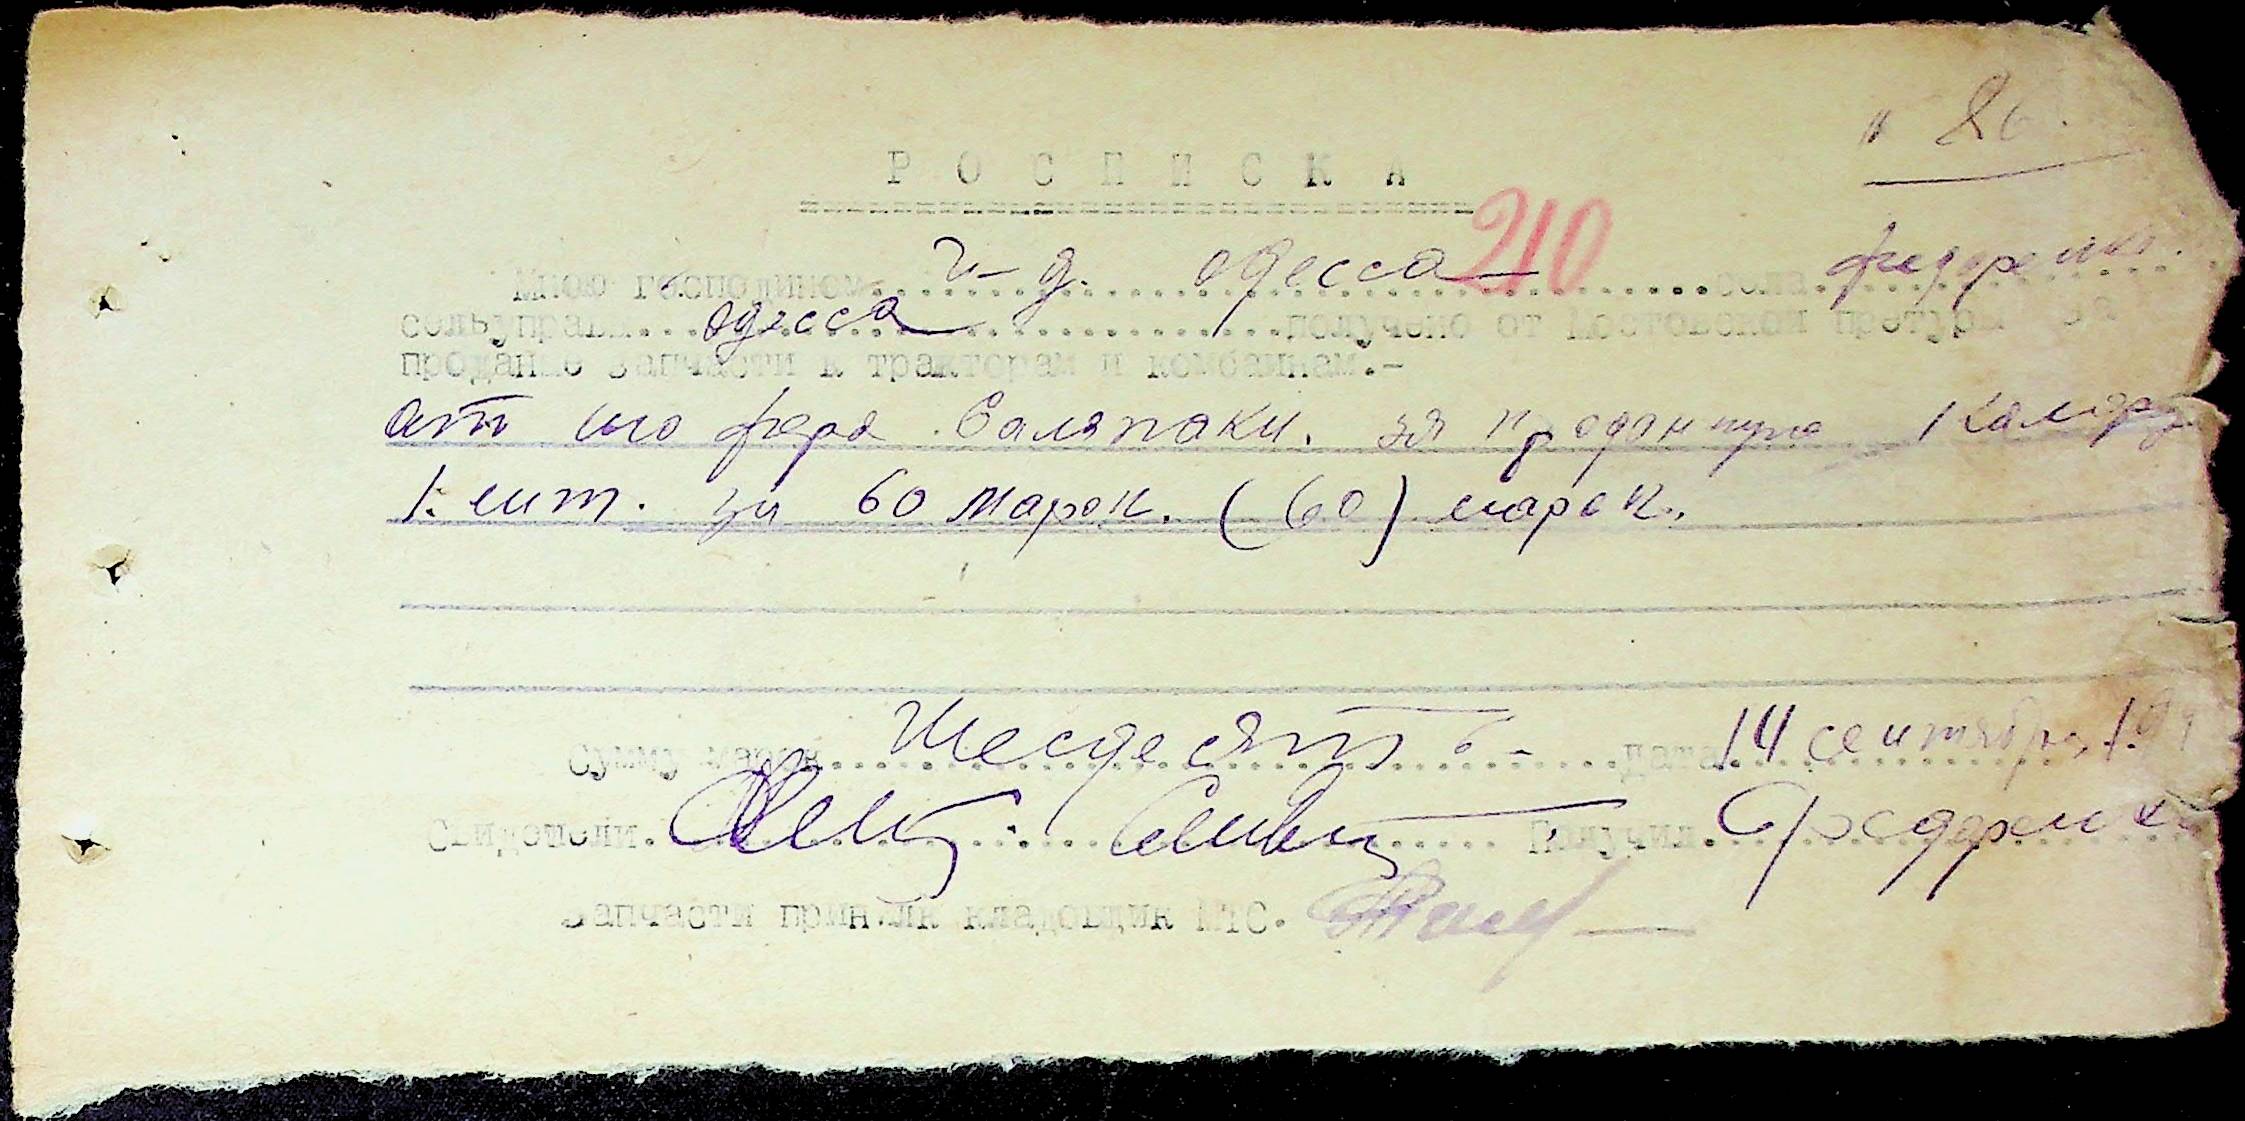 " 86.
Р О С П И С К А
210
Мною господином г-д. одесса села федоренко
сельуправы одесса получено от Мостовской претуры за
проданые запчасти к тракторам и комбайнам.-
от шофера за проданную 1 камеру
1. шт. за 60 марок. (60) марок.
Сумму марок Шесдесят дата 14 сентября 19
Свидетели. Получил. Федоренко
Запчасти принял кладовщик МТС.